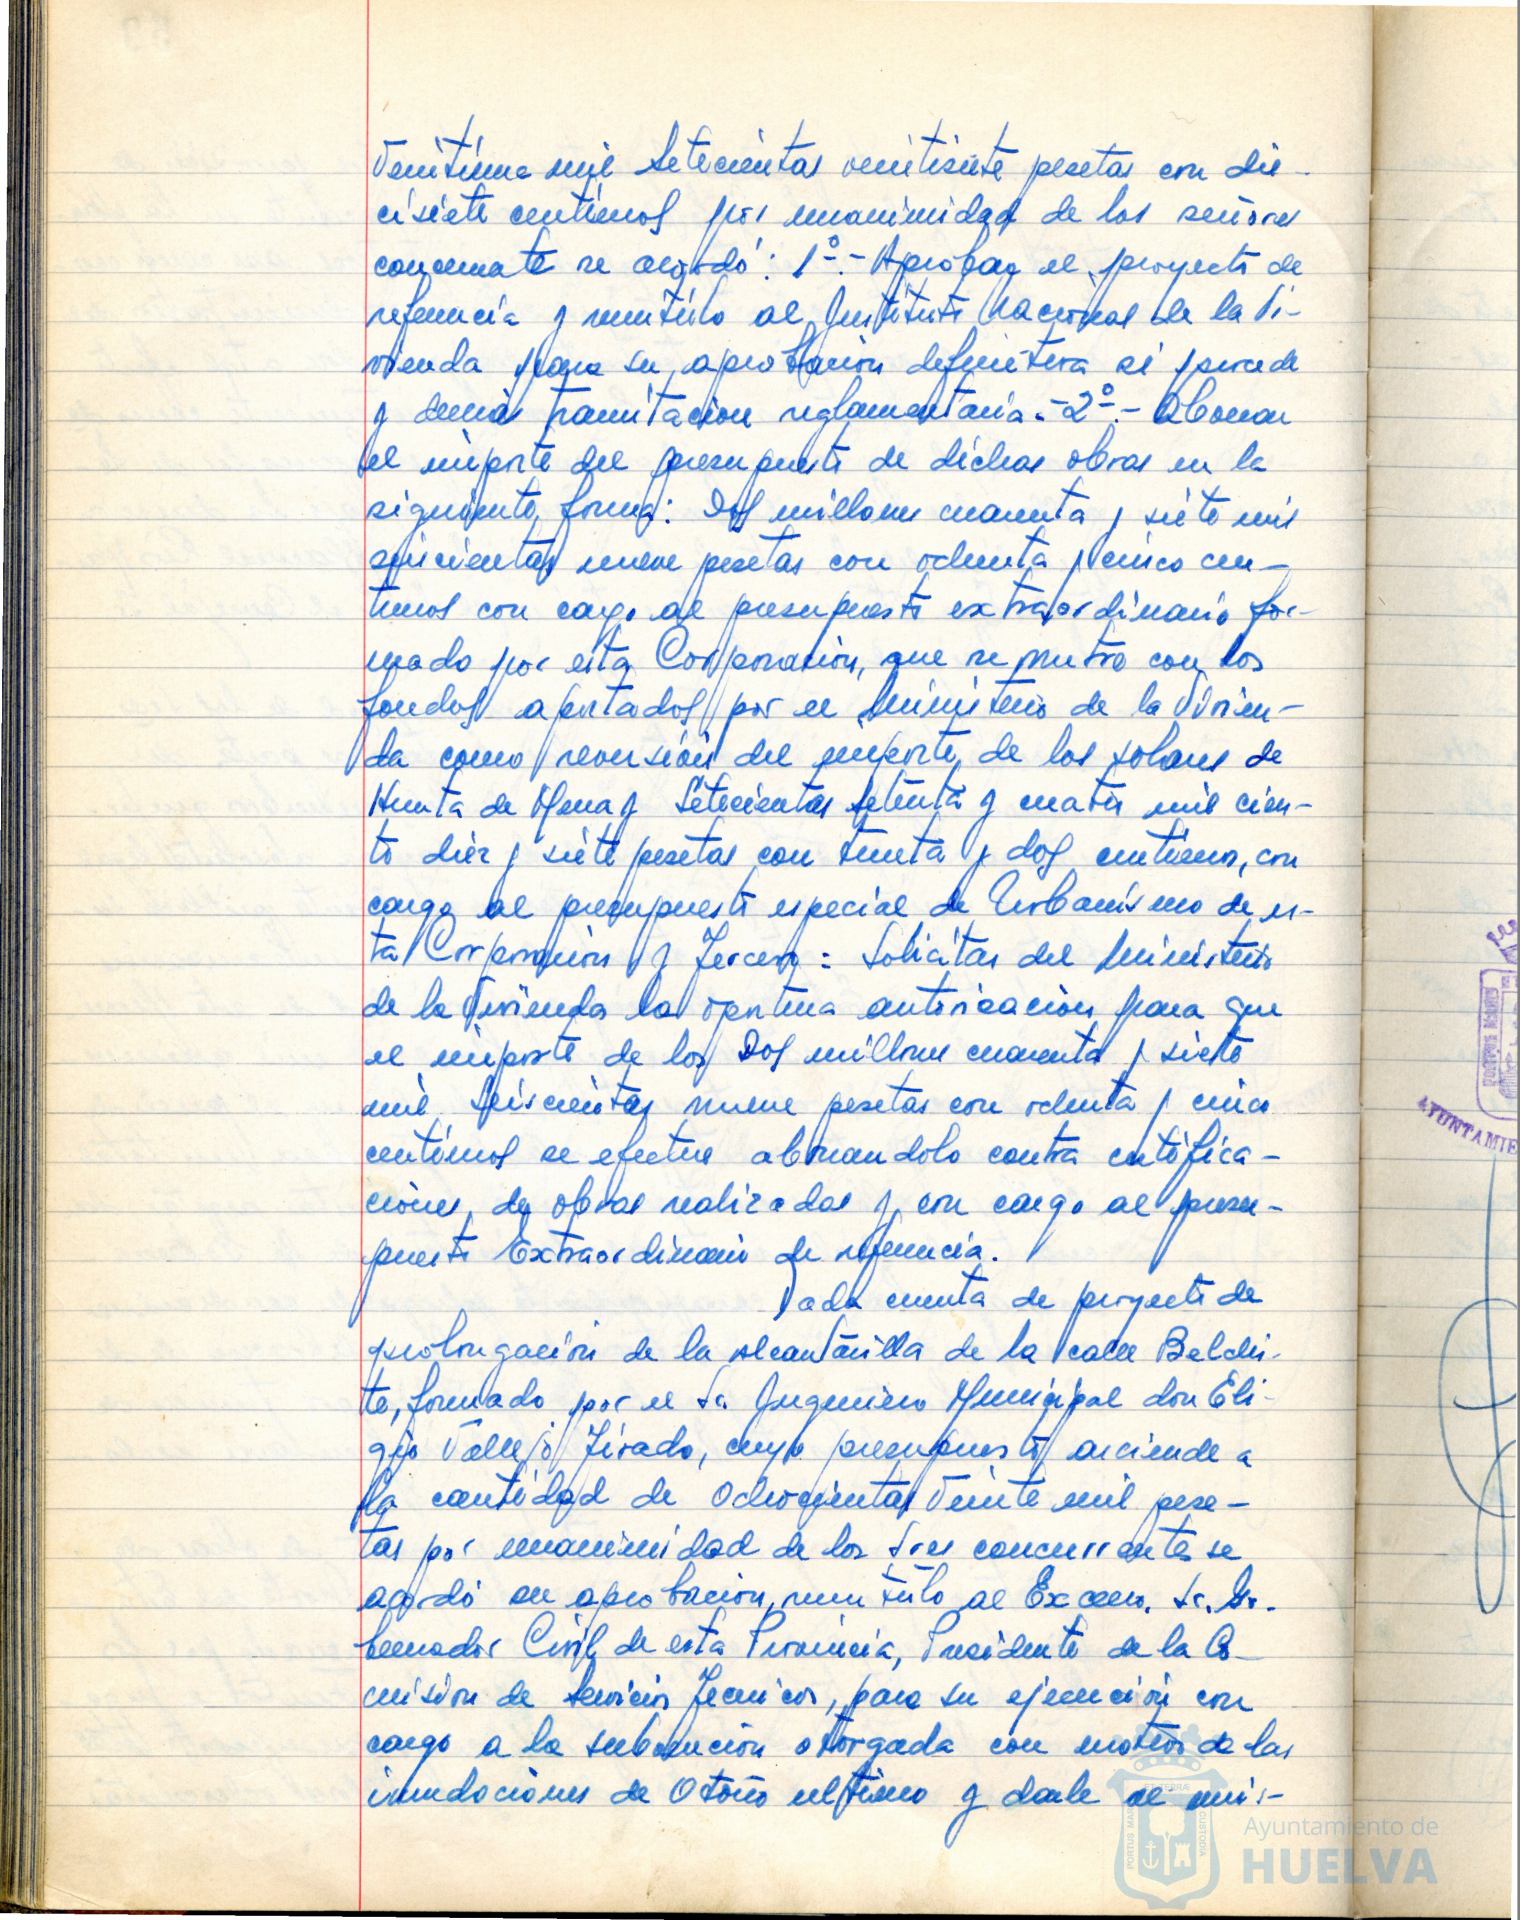 Veintiuna mil Setecientas veintisiete pesetas con die-
cisiete centimos por unanimidad de los señores
concurrentes se acordó: 1º.- Aprobar el proyecto de
referencia y remitirlo al Instituto Nacional de la Vi-
vienda para su aprobación definitiva si procede
y demás tramitación reglamentaria.- 2º.- Abonar
el importe del presupuesto de dichas obras en la
siguiente forma: Dos millones cuarenta y siete mil
seiscientas nueve pesetas con ochenta y cinco cen-
timos con cargo al presupuesto extraordinario for-
mado por esta Corporación, que se nutre con los
fondos aportados por el Ministerio de la Vivien-
da como reversión del importe de los solares de
Huerta de Mena y Setecientas setenta y cuatro mil cien-
to diez y siete pesetas con treinta y dos centimos, con
cargo al presupuesto especial de Urbanismo de es-
ta Corporación y Tercero: Solicitar del Ministerio
de la Vivienda la oportuna autorización para que
el importe de los Dos millones cuarenta y siete
mil Seiscientas nueve pesetas con ochenta y cinco
centimos se efectue abonandolo contra certifica-
ciones de obras realizadas y con cargo al presu-
puesto Extraordinario de referencia.
Dada cuenta de proyecto de
prolongación de la alcantarilla de la calle Belchi-
te, formado por el Sr. Ingeniero Municipal don Eli-
gio Vallejo Tirado, cuyo presupuesto asciende a
la cantidad de Ochocientas Veinte mil pese-
tas por unanimidad de los Sres concurrentes se
acordó su aprobación, remitirlo al Excmo. Sr. Go-
bernador Civil de esta Provincia, Presidente de la Co-
misión de Servicios Tecnicos, para su ejecución con
cargo a la subvención otorgada con motivo de las
inundaciones de Otoño ultimo y darle al mis-
PORTUS MARIS
AYUNTAMIE
PORTUS MARIS
ET TERRÆ
CUSTODIA
Ayuntamiento de
HUELVA